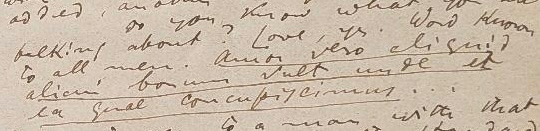 added, another
Do you know what you are
talking about? Love, yes. Word known
to all men. Amor vero aliquid
alicui bonum vult unde et
ea quae concupiscimus...
to a man with that